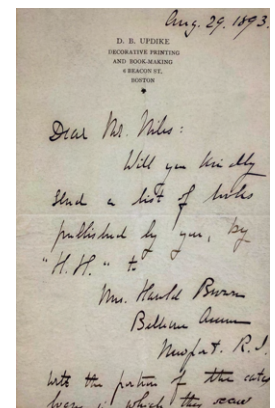 Aug. 29. 1893.
D. B. UPDIKE
DECORATIVE PRINTING
AND BOOK-MAKING
6 BEACON ST.
BOSTON
Dear Mr. Niles:
Will you kindly
send a list of books
published by you, by
"H.H." to
Mrs. Harold Brown
Bellevue Avenue
Newport. R.I.
with the portion of the cata
which the